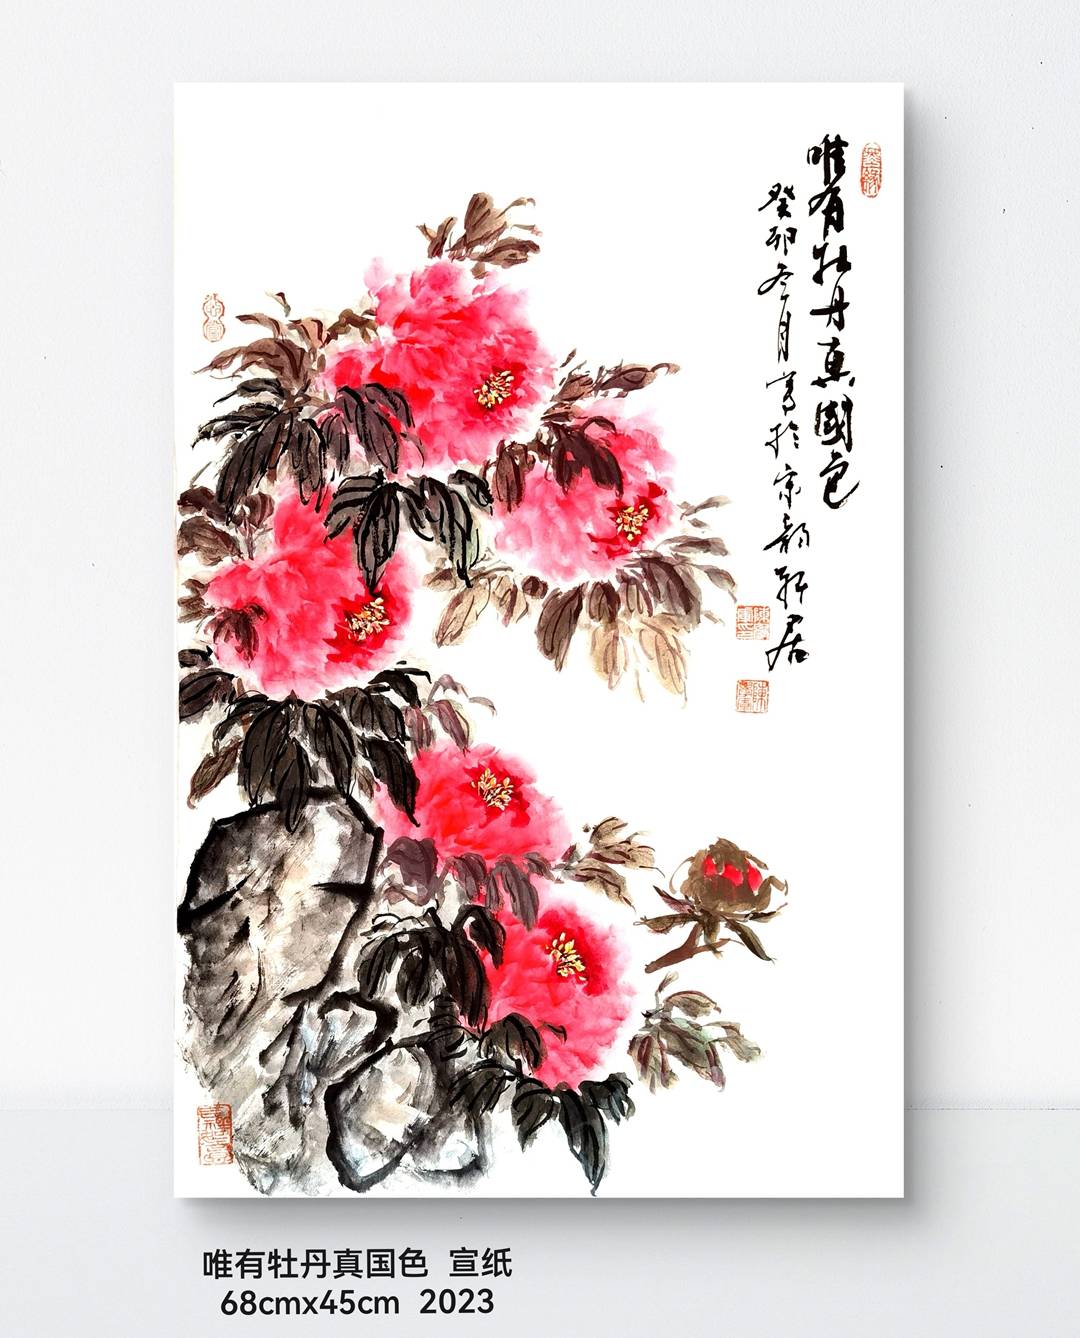 唯有牡丹真國色
癸卯冬月寫於京韵轩居
唯有牡丹真国色 宣纸
68cmx45cm 2023